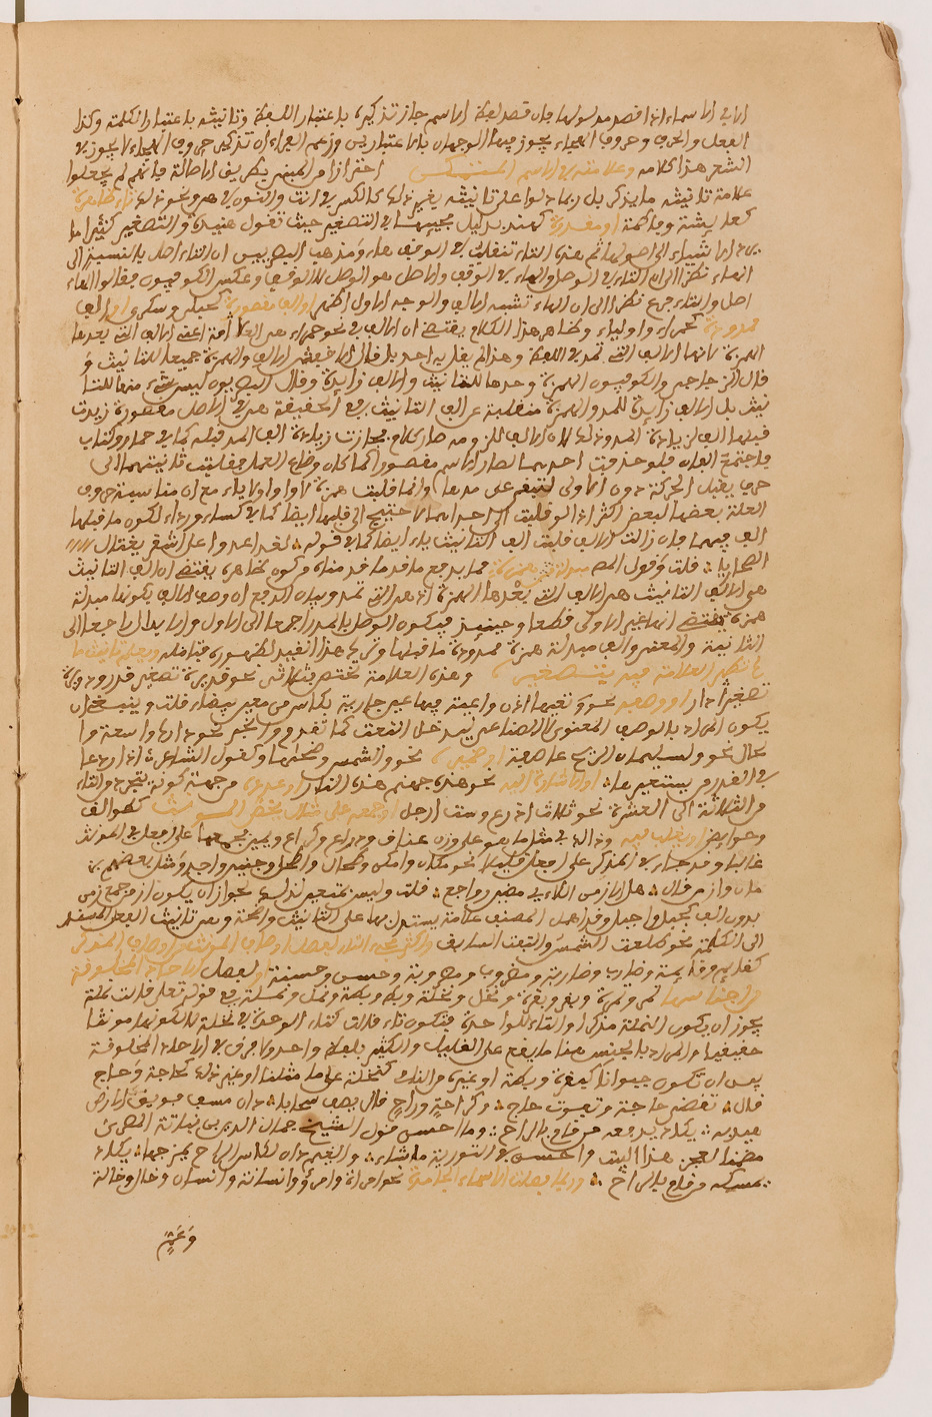 الا في الاسماء اذا قصد مدلولها فان قصد لفظ الاسم جاز تذكيره باعتبار اللفظ وتانيثه باعتبار الكلمة وكذا
الفعل والحرف وحروف الهجاء يجوز فيها الوجهان بالاعتبارين وزعم الفراء ان تذكير حروف الهجاء لا يجوز الا في
الشعر هذا كلامه وعلامته في الاسم المتمكن احترازا من المبني بطريق الاصالة فانهم لم يجعلوا
علامة تانيثه ما يذكر بل ربما دلوا على تانيثه بغير ذلك كالكسر في انت والنون في هن ونحو ذلك تاء ظاهرة
كعايشة وفاطمة او مقدرة كهند بدليل مجيبها في التصغير حيث تقول هنيدة والتصغير كثيرا ما
يرد الاشياء الى اصولها ثم هذه التاء تنقلب في الوقف هاء ومذهب البصريين ان التاء اصل بالنسبة الى
الهاء نظرا الى ان التاء في الوصل والهاء في الوقف والاصل هو الوصل لا الوقف وعكس الكوفيون فقالوا الهاء
اصل والتاء فرع نظرا الى ان الهاء تشبه الالف والوجه الاول اظهر او الف مقصورة كحبلى وسكرى او الف
ممدودة كحمراء واولياء وظاهر هذا الكلام يقتضي ان الالف في نحو حمراء هي العلامة اعني الالف التي بعدها
الهمزة لانها الالف التي تمد في اللفظ وهذا لم يقل به احد بل قال الاخفش الالف والهمزة جميعا للتانيث و
قال الزجاجي والكوفيون الهمزة وحدها للتانيث والالف زايدة وقال البصريون ليس شيء منها للتا
نيث بل الالف زايدة للمد والهمزة منقلبة عن الف التانيث وفي الحقيقة هي في الاصل مقصورة زيدت
قبلها الف لزيادة المد وذلك لان الالف للزومه صار كلام فجازت زيادة الف المد قبله كما في حمار وكتاب
فاجتمع الفان فلو حذفت احديهما لصار الاسم مقصورا كما كان وضاع العمل فقلبت ثانيتهما الى
حرف يقبل الحركة دون الاولى لتبقى على مدها وانما قلبت همزة لا واوا ولا ياء مع ان مناسبة حروف
العلة بعضها لبعض اكثر اذ لو قلبت الى احداهما لاحتيج الى قلبها ايضا كما في كساء ورداء لكون ما قبلها
الف فيهما فان زالت الالف قلبت الف التانيث ياء ايضا كما في قوله لقد اغدوا على اشقر يغتال
الصحاريا قلت وقول المص مبدلة همزة مما يدفع ما قدمناه من كون ظاهره يقتضي ان الف التانيث
هي الالف التانيث هي الالف التي بعدها الهمزة اذ هي التي تمد وبيان الدفع ان وصف الالف بكونها مبدلة
همزة يقتضي انها غير الاولى قطعا وحينيذ فيكون الوصل بالمد راجعا الى الاول والابدال راجعا الى
الثانية والمعنى والف مبدلة همزة ممدودة ما قبلها وترك هذا القيد لظهوره فتامله ويعلم تانيث ما
لم تظهر العلامة فيه بتصغيره وهذه العلامة تختص بالثلاثي نحو قديرة تصغير قدر ودويرة
تصغير دار او وصفه نحو وتعيها اذن واعية فيها عين جارية بكاس من معين بيضاء قلت وينبغي ان
يكون المراد بالوصف المعنوي لا الصناعي فيدخل النعت كما تقدم والخبر نحو دارها واسعة وا
لحال نحو ولسليمان الريح عاصفة او ضميره نحو والشمس وضحاها وكقول الشاعر اذا دعا
في القدر من يستعيرها او الاشارة اليه نحو هذه جهنم هذه النار او عدده من جهة كونه بتجرده والتاء
من الثلاثة الى العشرة نحو ثلاث اذرع وست ارجل او جمعه على مثال يخص المونث كطوالق
وحوايض او يغلب فيه وذلك في مثل ما هو على وزن عناق وذراع وكراع ويمين فجمعها على افعل في المونث
غالبا وقد جاء في المذكر على افعل قليلا نحو مكان وامكن وطحال واطحل وجنين واجنن ومثل بعضهم بـ
ـازمن قال هل الازمن اللاءي مضين رواجع قلت وليس بمتعين لذلك لجواز ان يكون ازمن جمع زمن
بدون الف كجبل واجبل وقد اهمل المصنف علامة يستدل بها على التانيث واضحة وهي تانيث الفعل المسند
الى الكلمة نحو طلعت الشمس والتفت الساق واكثر مجيء التاء لفصل اوصاف المونث من اوصاف المذكر
كقايم وقايمة وضارب وضاربة ومضروب ومضروبة وحسن وحسنة او لفصل الاحاد المخلوقة
من اجناسها كتمر وتمرة وبقر وبقرة ونخل ونخلة وبط وبطة ونمل ونملة وفي قوله تعالى قالت نملة
يجوز ان يكون النملة مذكرا والتاء للواحدة فتكون تاء قالت كتاء الوحدة في نملة لا لكونها مونثا
حقيقيا والمراد بالجنس هنا ما يقع على القليل والكثير بلفظ واحد ولا فرق في الاحاد المخلوقة
بين ان تكون حيوانا كبقرة وبطة او غيره والثلاث كنخلة على ما مثلنا او غير ذلك كحاجة وحاج
قال تقضى حاجة وتفوت حاج وكراحة وراح قال يصف سحابا دان مسف فويق الارض
هيدبه يكاد يدفعه من قام بالراح وما احسن قول الشيخ جمال الدين بن نباتة المصري
مضمنا لعجز هذا البيت واحسن في التورية ما شاء والغيم دان لكاس الراح يمزجها يكاد
يمسكه من قام بالراح وربما يصلت الاسماء الجامدة نحو امراة وامرؤ وانسانة وانسان وخال وخالة
وعمة